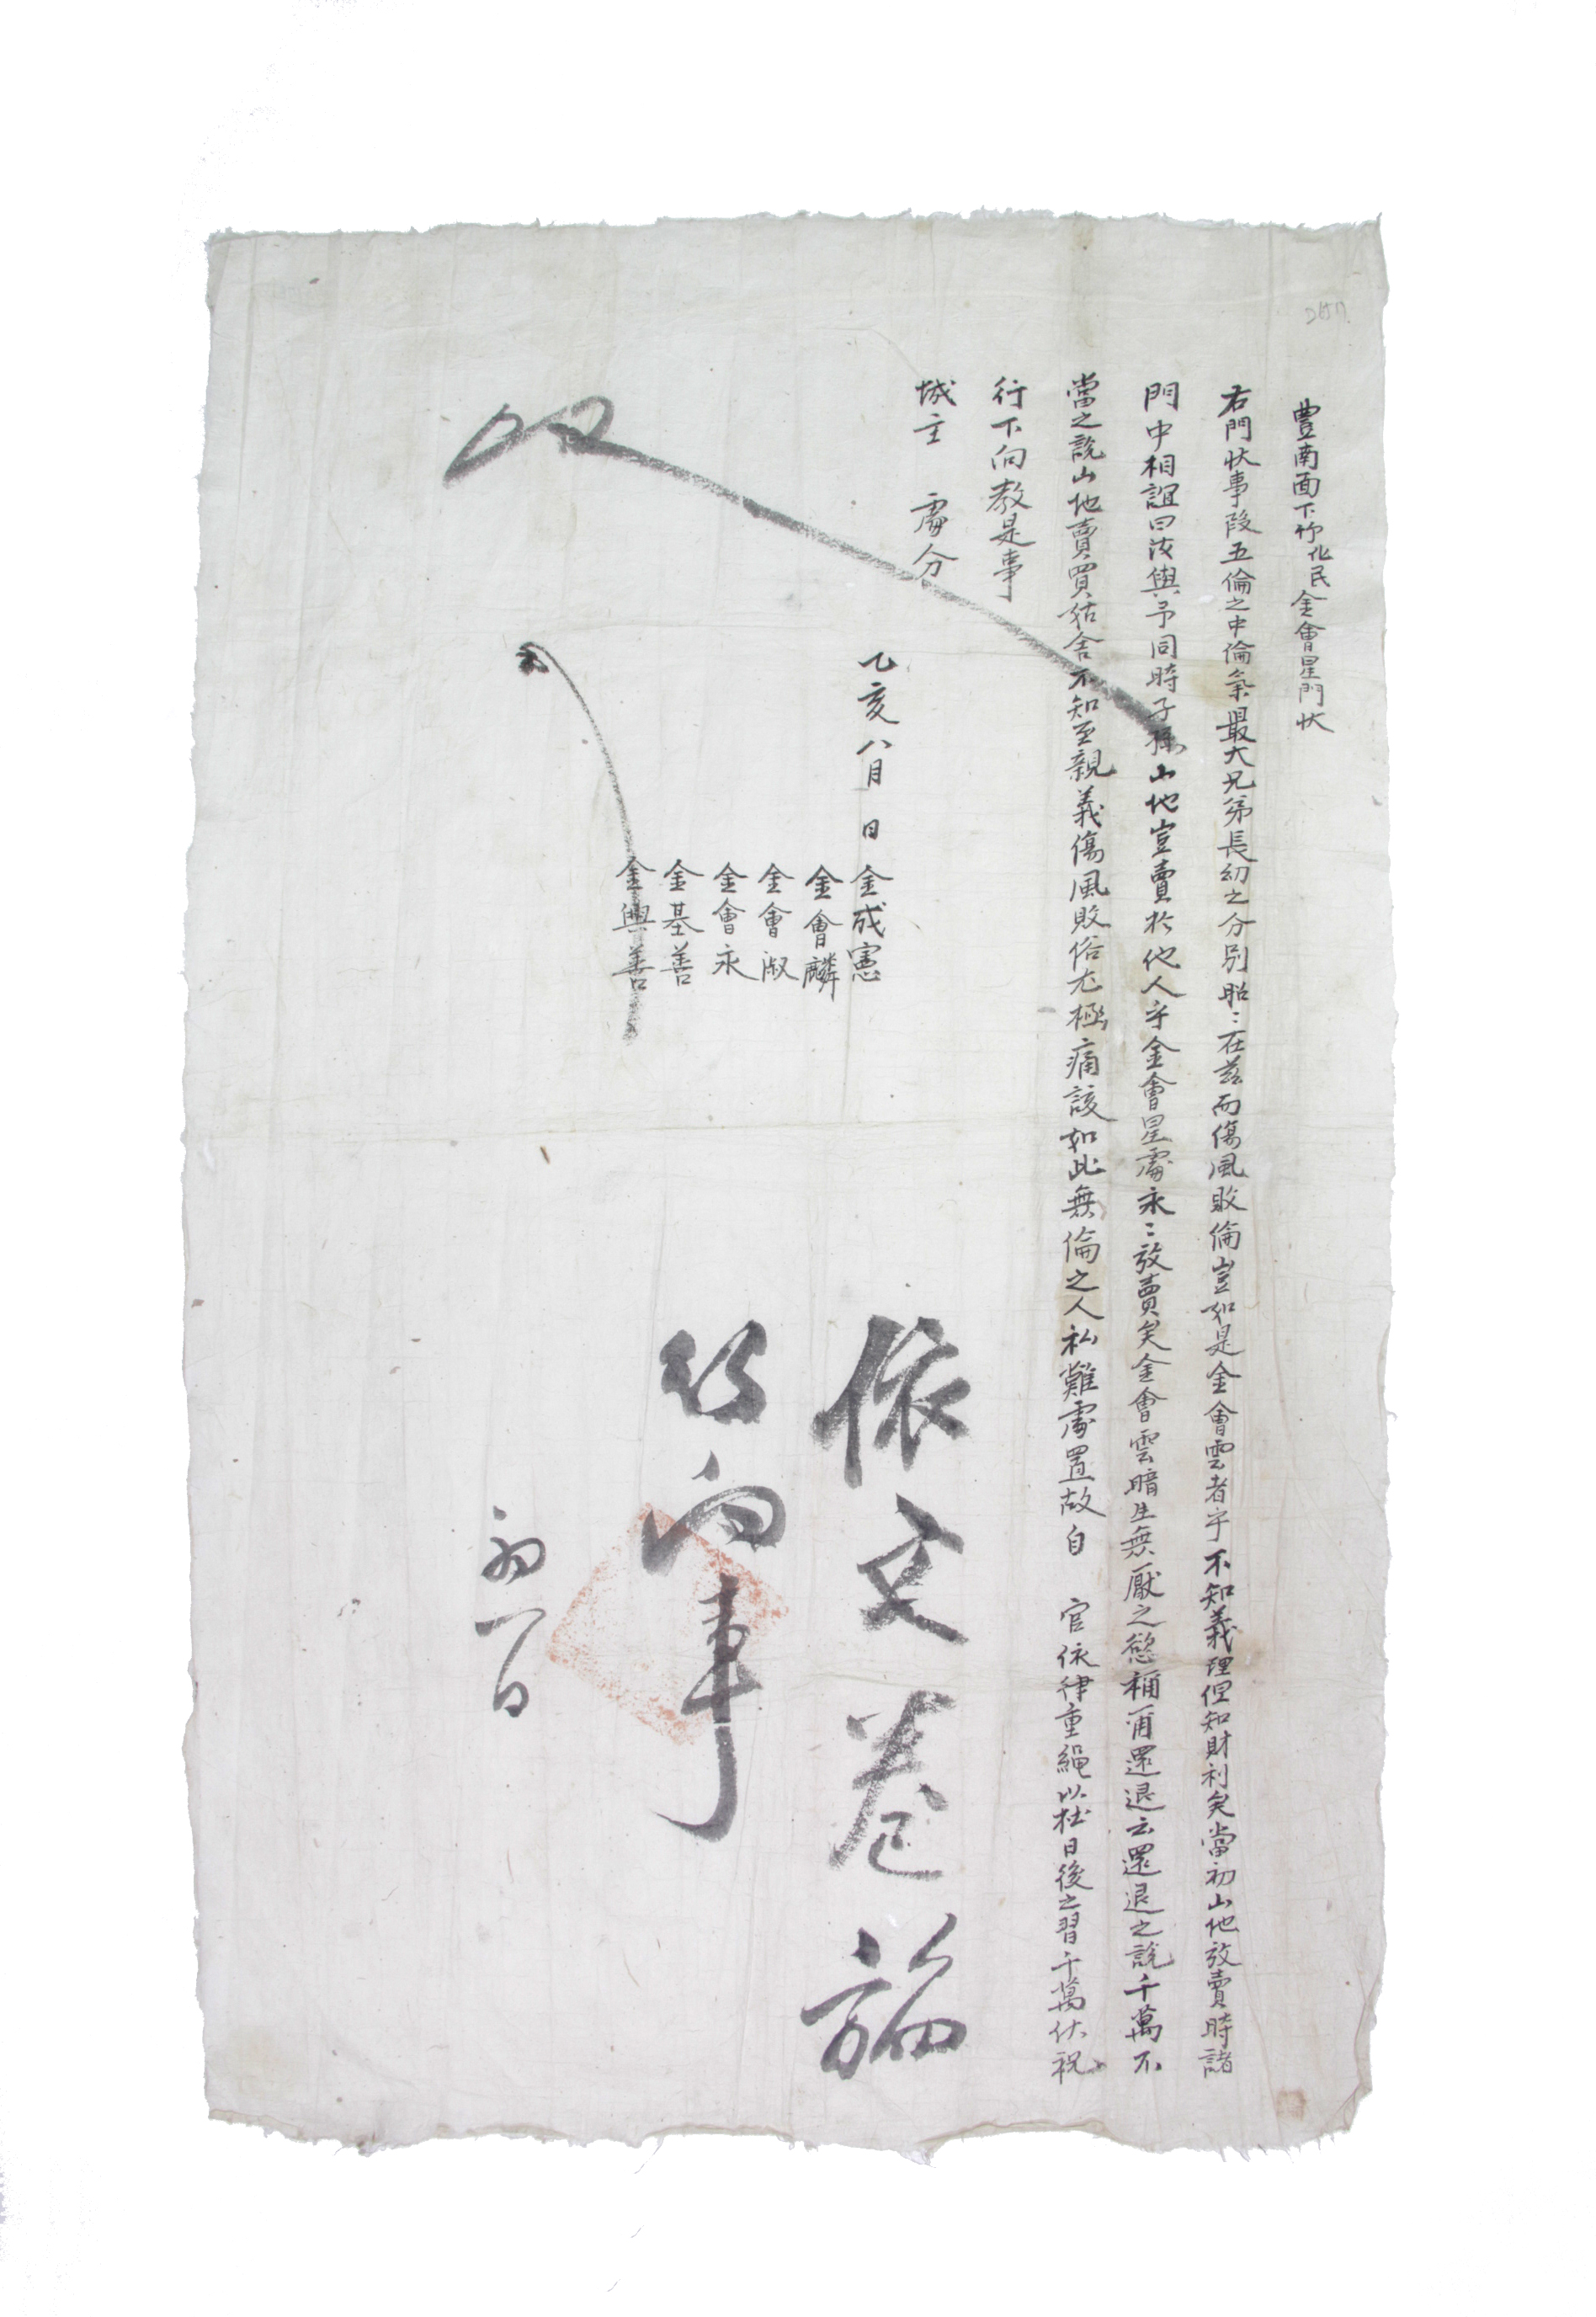 豊南面下竹化民金會星門狀
右門狀事段五倫之中倫氣最大兄弟長幼之分別昭〻在茲而傷風敗倫豈如是金會雲者乎不知義理但知財利矣當初山地放賣時諸
門中相誼曰汝與予同時子孫山地豈賣於他人乎金會星處永〻放賣矣金會雲暗生無厭之慾稱甫還退云還退之說千萬不
當之說山地賣買姑舍不知至親義傷風敗俗尤極痛該如此無倫之人私難處置故自 官依律重繩以杜日後之習千萬伏祝
行下向敎是事
城主 處分
乙亥八月 日 金成憲
金會麟
金會淑
金會永
金基善
金興善
依文卷施
行向事
初一日